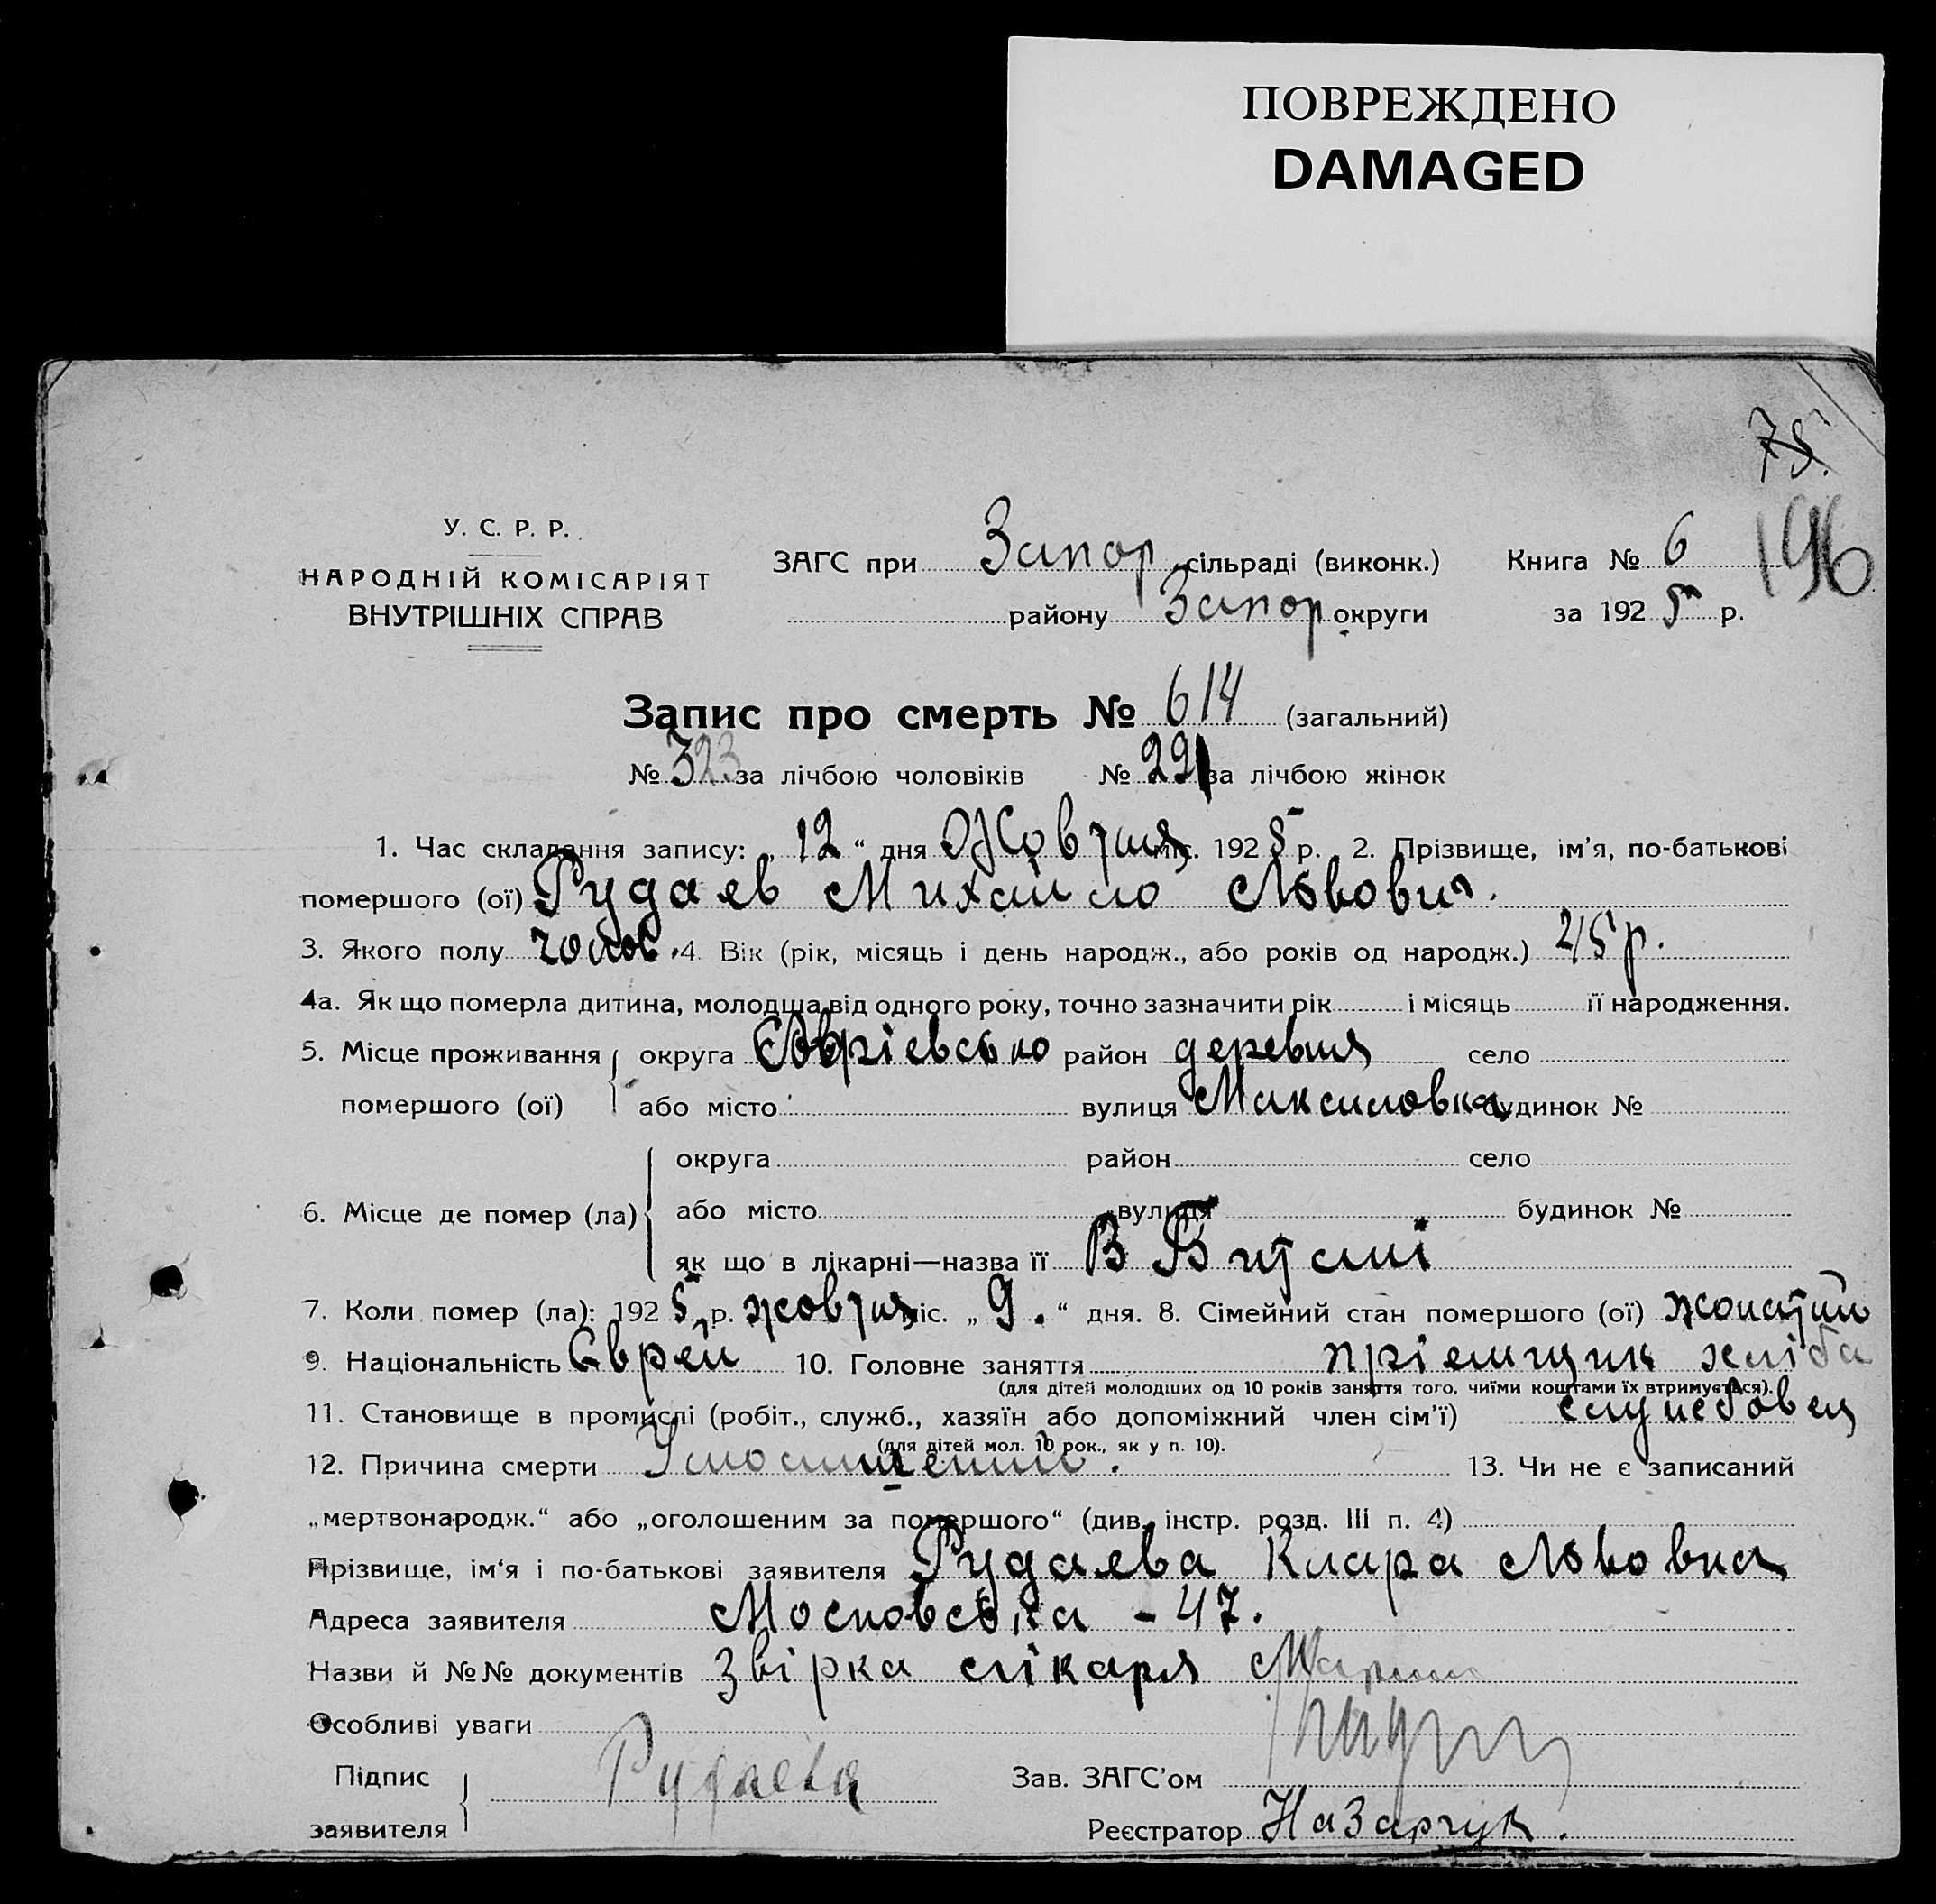 ПОВРЕЖДЕНО
DAMAGED
75.
196
У. С. Р. Р.
НАРОДНІЙ КОМІСАРІЯТ
ВНУТРІШНІХ СПРАВ
ЗАГС при Запор сільраді (виконк.) Книга № 6
району Запор округи за 1925 р.
Запис про смерть № 614 (загальний)
№ 323 за лічбою чоловіків № 291 за лічбою жінок
1. Час складання запису: „ 12 “ дня Жовтня міс. 1925 р. 2. Прізвище, ім'я, по-батькові
помершого (ої) Рудаєв Михайло Львович.
3. Якого полу чолов. 4. Вік (рік, місяць і день народж., або років од народж.) 25 р.
4а. Як що померла дитина, молодша від одного року, точно зазначити рік і місяць її народження.
5. Місце проживання округа район деревня село
помершого (ої) або місто вулиця Максимовка будинок №
округа район село
6. Місце де помер (ла) або місто вулиця будинок №
як що в лікарні—назва її В
7. Коли помер (ла): 1925 р. жовтня міс. „ 9. “ дня. 8. Сімейний стан помершого (ої) жонатий
9. Національність Єврей 10. Головне заняття пріємщик хліба
(для дітей молодших од 10 років заняття того, чиїми коштами їх втримується).
11. Становище в промислі (робіт., служб., хазяїн або допоміжний член сім'ї) служебовец
(для дітей мол. 10 рок., як у п. 10).
12. Причина смерти 13. Чи не є записаний
„мертвонародж.“ або „оголошеним за помершого“ (див. інстр. розд. III п. 4)
Прізвище, ім'я і по-батькові заявителя Рудаєва Клара Львовна
Адреса заявителя Московська - 47.
Назви й №№ документів Звірка лікаря
Особливі уваги
Підпис
заявителя Рудаева
Зав. ЗАГС'ом
Реєстратор Назарчук.